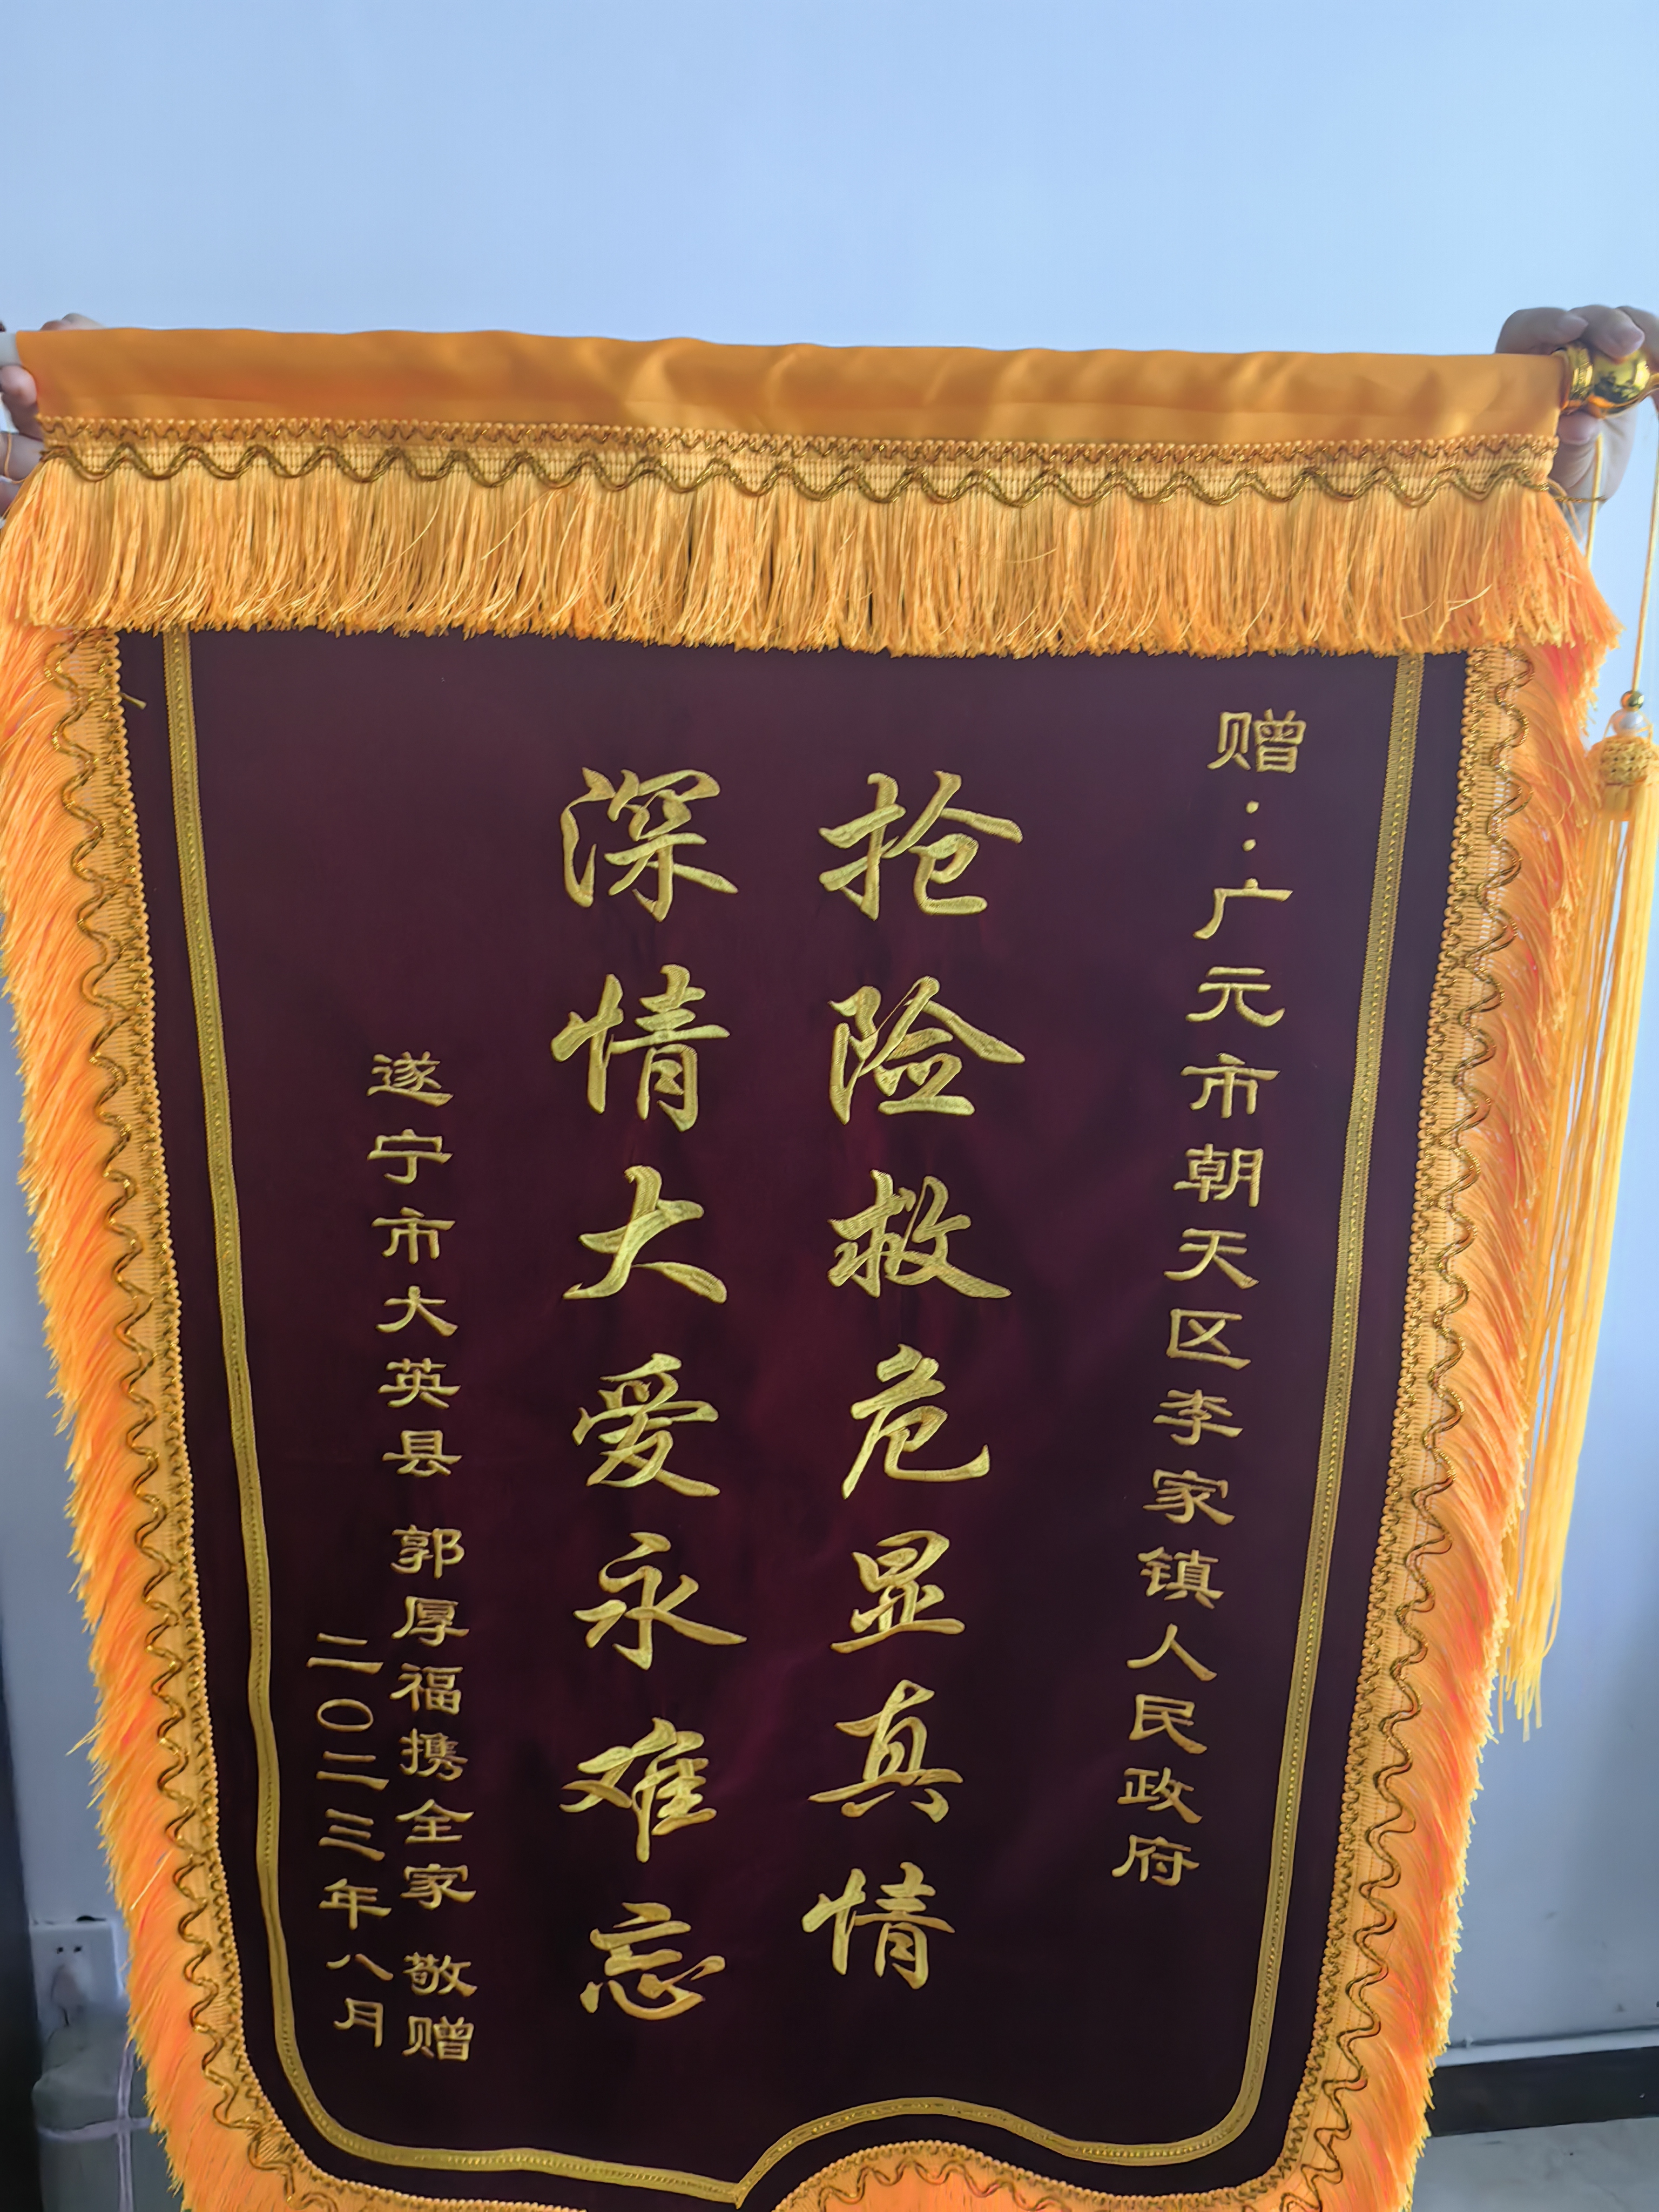 赠:广元市朝天区李家镇人民政府
抢险救危显真情
深情大爱永难忘
遂宁市大英县 郭厚福携全家 敬赠
二〇二三年八月